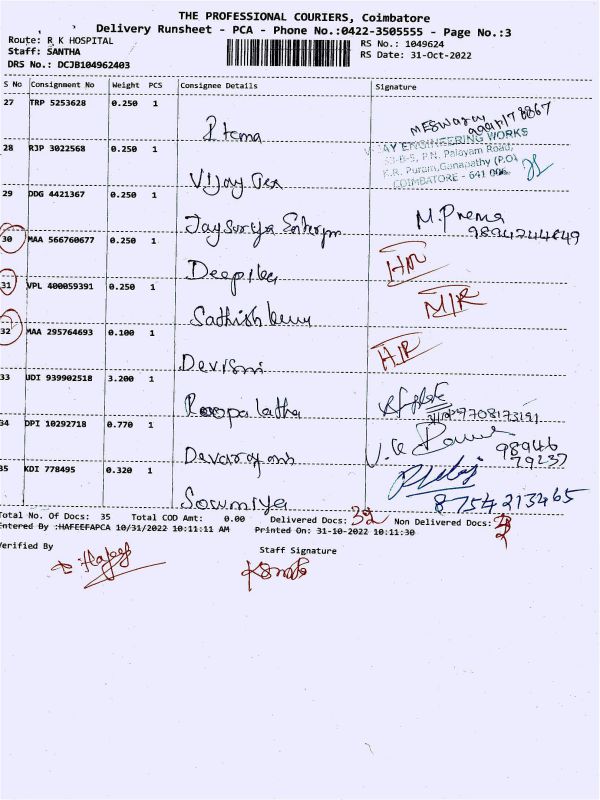 THE PROFESSIONAL COURIERS, Coimbatore
Delivery Runsheet - PCA - Phone No.:0422-3505555 - Page No.:3
Route: R K HOSPITAL
RS No.: 1049624
Staff: SANTHA
RS Date: 31-Oct-2022
DRS No.: DCJB104962403
S No Consignment No Weight PCS Consignee Details Signature
27 TRP 5253628 0.250 1
28 RJP 3022568 0.250 1
VIJAY ENGINEERING WORKS
53-B-5, P.N. Palayam Road,
K.R. Puram, Ganapathy (P.O)
COIMBATORE - 641 006.
Vijay Tex
29 DDG 4421367 0.250 1
M. Prema
Jaysurya Enterpr
9894244649
30 MAA 566760677 0.250 1
Deepika
31 VPL 400059391 0.250 1
Sathish kumu
32 MAA 295764693 0.100 1
Devismi
33 UDI 939902518 3.200 1
Roopa latha
9708173191
34 DPI 10292718 0.770 1
98946
79237
35 KDI 778495 0.320 1
Sowmiya
8754213465
Total No. Of Docs: 35 Total COD Amt: 0.00 Delivered Docs: 32 Non Delivered Docs: 3
Entered By :HAFEEFAPCA 10/31/2022 10:11:11 AM Printed On: 31-10-2022 10:11:30
Verified By
Staff Signature